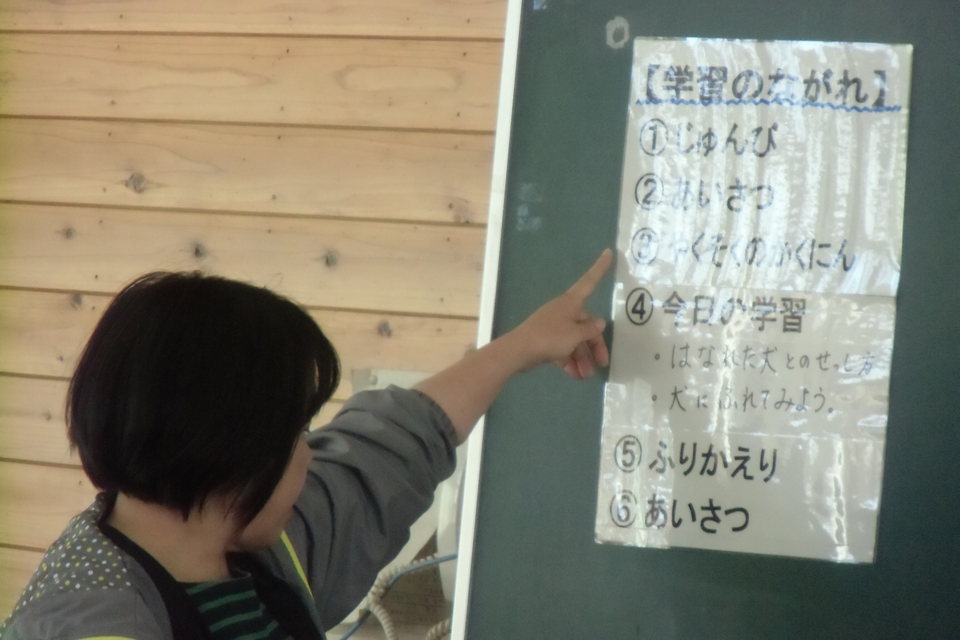 【学習のながれ】
①じゅんび
②あいさつ
③やくそくのかくにん
④今日の学習
・はなれた犬とのせっし方
・犬にふれてみよう。
⑤ふりかえり
⑥あいさつ